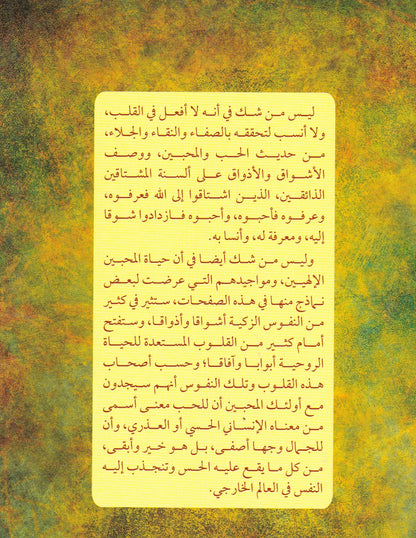 ليس من شك في أنه لا أفعل في القلب،
ولا أنسب لتحققه بالصفاء والنقاء والجلاء،
من حديث الحب والمحبين، ووصف
الأشواق والأذواق على ألسنة المشتاقين
الذائقين، الذين اشتاقوا إلى الله فعرفوه،
وعرفوه فأحبوه، وأحبوه فازدادوا شوقا
إليه، ومعرفة له، وأنسا به.
وليس من شك أيضا في أن حياة المحبين
الإلهيين، ومواجيدهم التي عرضت لبعض
نماذج منها في هذه الصفحات، ستثير في كثير
من النفوس الزكية أشواقا وأذواقا، وستفتح
أمام كثير من القلوب المستعدة للحياة
الروحية أبوابا وآفاقا؛ وحسب أصحاب
هذه القلوب وتلك النفوس أنهم سيجدون
مع أولئك المحبين أن للحب معنى أسمى
من معناه الإنساني الحسي أو العذري، وأن
للجمال وجها أصفى، بل هو خير وأبقى،
من كل ما يقع عليه الحس وتنجذب إليه
النفس في العالم الخارجي.